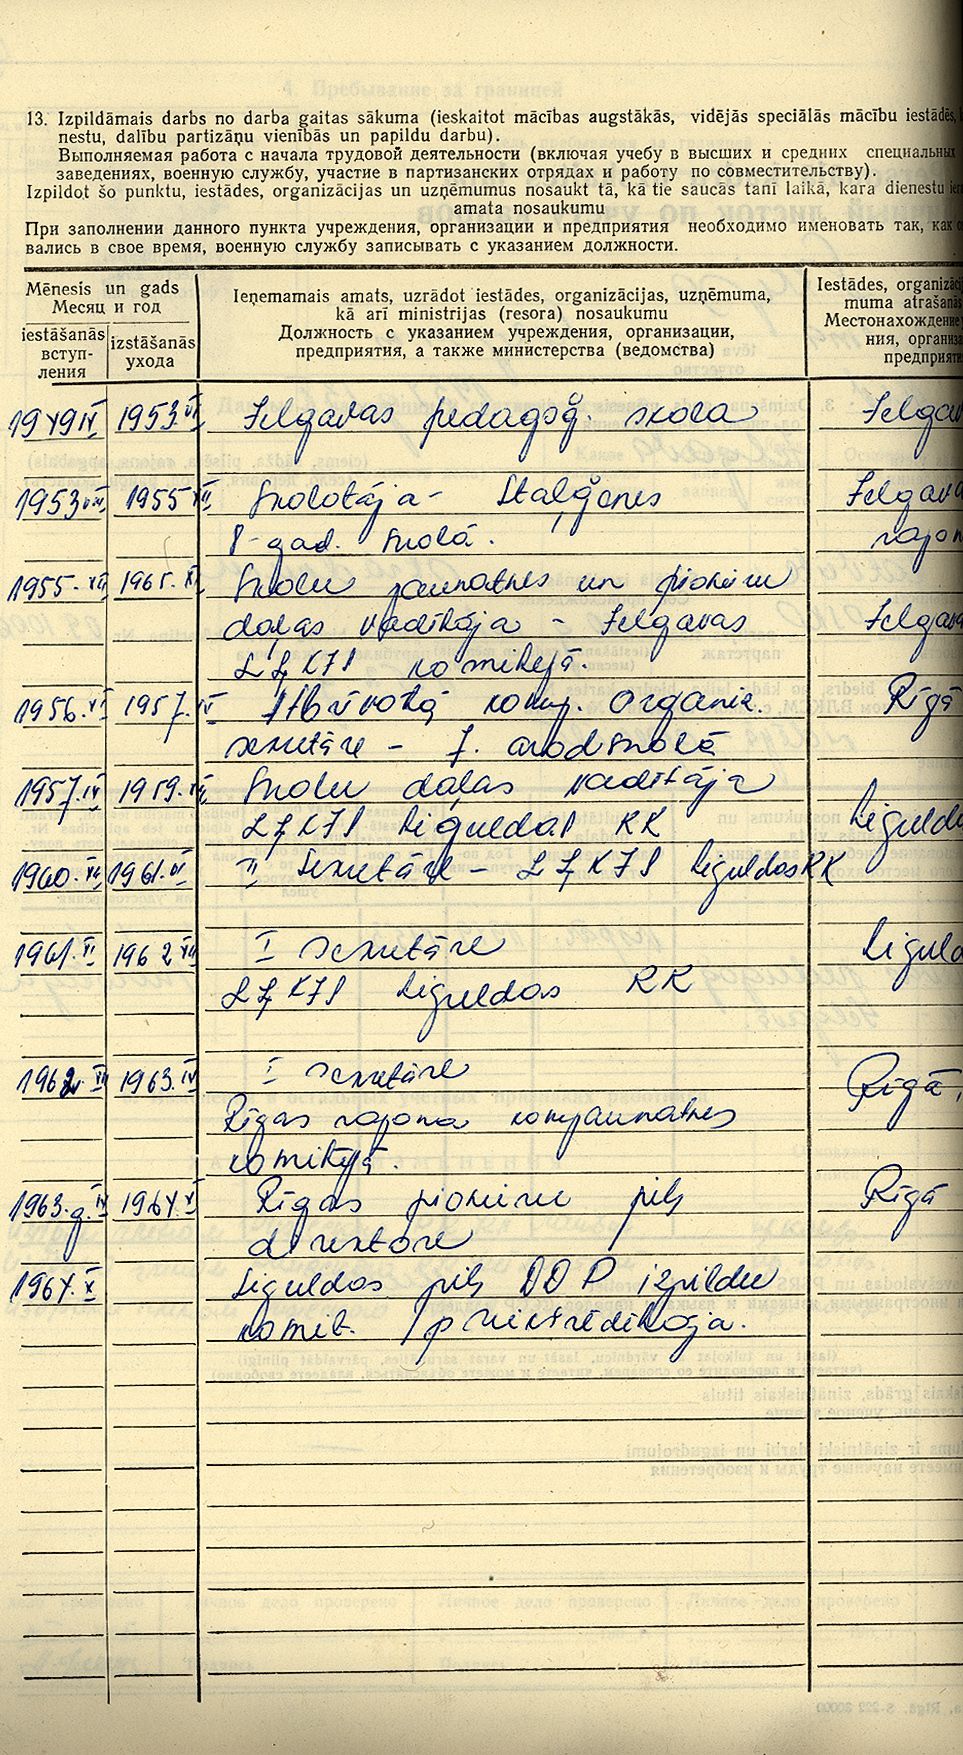 13. Izpildāmais darbs no darba gaitas sākuma (ieskaitot mācības augstākās, vidējās speciālās mācību iestādēs,
nestu, dalību partizāņu vienībās un papildu darbu).
Выполняемая работа с начала трудовой деятельности (включая учебу в высших и средних специальных
заведениях, военную службу, участие в партизанских отрядах и работу по совместительству).
Izpildot šo punktu, iestādes, organizācijas un uzņēmumus nosaukt tā, kā tie saucās tani laikā, kara dienestu
amata nosaukumu
При заполнении данного пункта учреждения, организации и предприятия необходимо именовать так, как
вались в свое время, военную службу записывать с указанием должности.
Mēnesis un gads
Месяц и год
iestāšanās
вступ-
ления
izstāšanās
ухода
Ieņemamais amats, uzrādot iestādes, organizācijas, uzņēmuma,
kā arī ministrijas (resora) nosaukumu
Должность с указанием учреждения, организации,
предприятия, а также министерства (ведомства)
Iestādes, organizāci
muma atrašanās
Местонахождение
ния, организа
предприяти
1949 IX 1953. VII Jelgavas pedagoģ. skola Jelgav
1953 VIII 1955 XII Skolotāja - Staļģenes Jelgava
8-gad. skolā. rajon
1955. XII Skolu jaunatnes un pionieru
daļas vadītāja - Jelgavas Jelgava
LĻKJS komitejā.
1956. XI 1957. IV Atbrīvotā komj. organiz. Rīgā
sekretāre - 7. arodskolā
1957. IV 1959. XII Skolu daļas vadītāja
LĻKJS Siguldas RK Siguldā
1960. XII 1961. VI II Sekretāre - LĻKJS Siguldas RK
1961. XI 1962 XII I sekretāre Siguld
LĻKJS Siguldas RK
1962. XII 1963. IV I sekretāre Rīgā,
Rīgas rajona komjaunatnes
komitejā.
1963. g. IV 1964. X Rīgas pionieru pils Rīgā
direktore
1964. X Siguldas pils. DDP izpildu
komit. priekšsēdētāja.